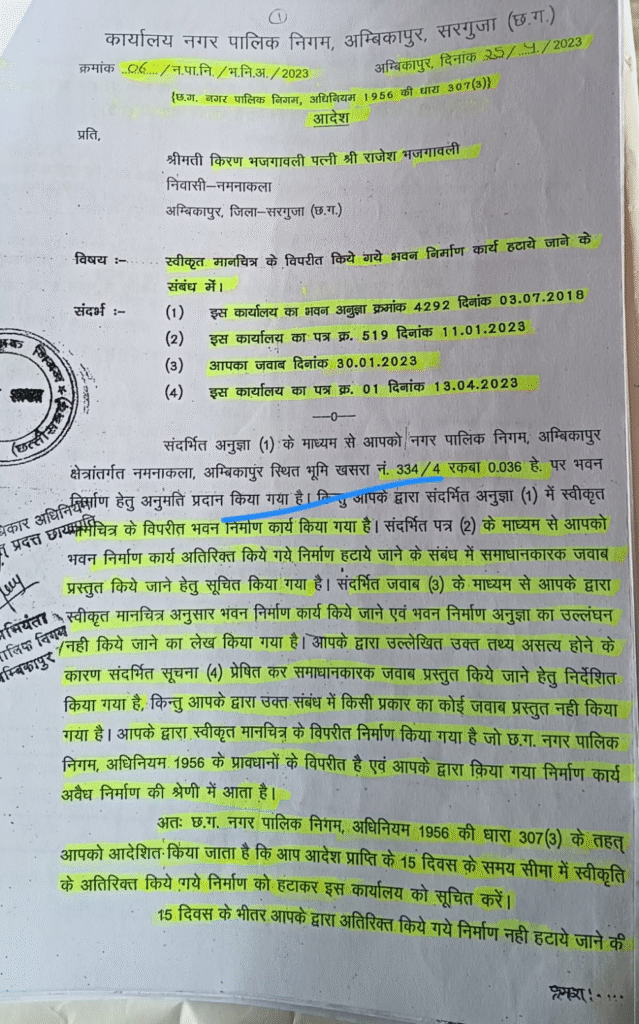 1
कार्यालय नगर पालिक निगम, अम्बिकापुर, सरगुजा (छ.ग.)
क्रमांक 06 /न.पा.नि./भ.नि.अ./2023
अम्बिकापुर, दिनांक 25/4/2023
{छ.ग. नगर पालिक निगम, अधिनियम 1956 की धारा 307(3)}
आदेश
प्रति,
श्रीमती किरण भजगावली पत्नी श्री राजेश भजगावली
निवासी–नमनाकला
अम्बिकापुर, जिला–सरगुजा (छ.ग.)
विषय :– स्वीकृत मानचित्र के विपरीत किये गये भवन निर्माण कार्य हटाये जाने के
संबंध में।
संदर्भ :– (1) इस कार्यालय का भवन अनुज्ञा क्रमांक 4292 दिनांक 03.07.2018
(2) इस कार्यालय का पत्र क्र. 519 दिनांक 11.01.2023
(3) आपका जवाब दिनांक 30.01.2023
(4) इस कार्यालय का पत्र क्र. 01 दिनांक 13.04.2023
—0—
संदर्भित अनुज्ञा (1) के माध्यम से आपको नगर पालिक निगम, अम्बिकापुर
क्षेत्रांतर्गत नमनाकला, अम्बिकापुर स्थित भूमि खसरा नं. 334/4 रकबा 0.036 हे. पर भवन
निर्माण हेतु अनुमति प्रदान किया गया है। किन्तु आपके द्वारा संदर्भित अनुज्ञा (1) में स्वीकृत
मानचित्र के विपरीत भवन निर्माण कार्य किया गया है। संदर्भित पत्र (2) के माध्यम से आपको
भवन निर्माण कार्य अतिरिक्त किये गये निर्माण हटाये जाने के संबंध में समाधानकारक जवाब
प्रस्तुत किये जाने हेतु सूचित किया गया है। संदर्भित जवाब (3) के माध्यम से आपके द्वारा
स्वीकृत मानचित्र अनुसार भवन निर्माण कार्य किये जाने एवं भवन निर्माण अनुज्ञा का उल्लंघन
नही किये जाने का लेख किया गया है। आपके द्वारा उल्लेखित उक्त तथ्य असत्य होने के
कारण संदर्भित सूचना (4) प्रेषित कर समाधानकारक जवाब प्रस्तुत किये जाने हेतु निर्देशित
किया गया है, किन्तु आपके द्वारा उक्त संबंध में किसी प्रकार का कोई जवाब प्रस्तुत नही किया
गया है। आपके द्वारा स्वीकृत मानचित्र के विपरीत निर्माण किया गया है जो छ.ग. नगर पालिक
निगम, अधिनियम 1956 के प्रावधानों के विपरीत है एवं आपके द्वारा किया गया निर्माण कार्य
अवैध निर्माण की श्रेणी में आता है।
अतः छ.ग. नगर पालिक निगम, अधिनियम 1956 की धारा 307(3) के तहत्
आपको आदेशित किया जाता है कि आप आदेश प्राप्ति के 15 दिवस के समय सीमा में स्वीकृति
के अतिरिक्त किये गये निर्माण को हटाकर इस कार्यालय को सूचित करें।
15 दिवस के भीतर आपके द्वारा अतिरिक्त किये गये निर्माण नही हटाये जाने की
क्रमशः....
(छत्तीसगढ़)
धिकार अधिनियम
प्रदत्त छायाप्रति
भियंता
पालिक निगम
म्बिकापुर